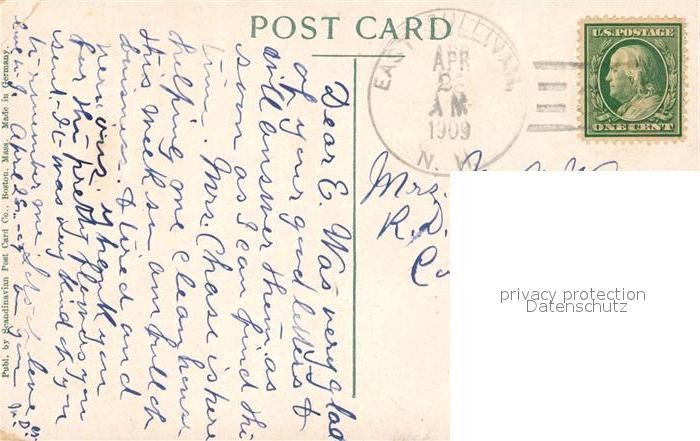 POST CARD
EAST SULLIVAN
APR
26
A M
1909
N. H.
U.S. POSTAGE
ONE CENT
Dear E. Was very glad
of your good letters &
will answer them as
soon as I can find the
time. Mrs. Chase is here
helping me clean house
this week so am full of
business & tired and
nervous. Thank you
for the pretty flowers you
sent. It was very kind of you
to remember me. Lots of love
Mrs.
R.D.
privacy protection
Datenschutz
Publ. by Scandinavian Post Card Co., Boston, Mass. Made in Germany.